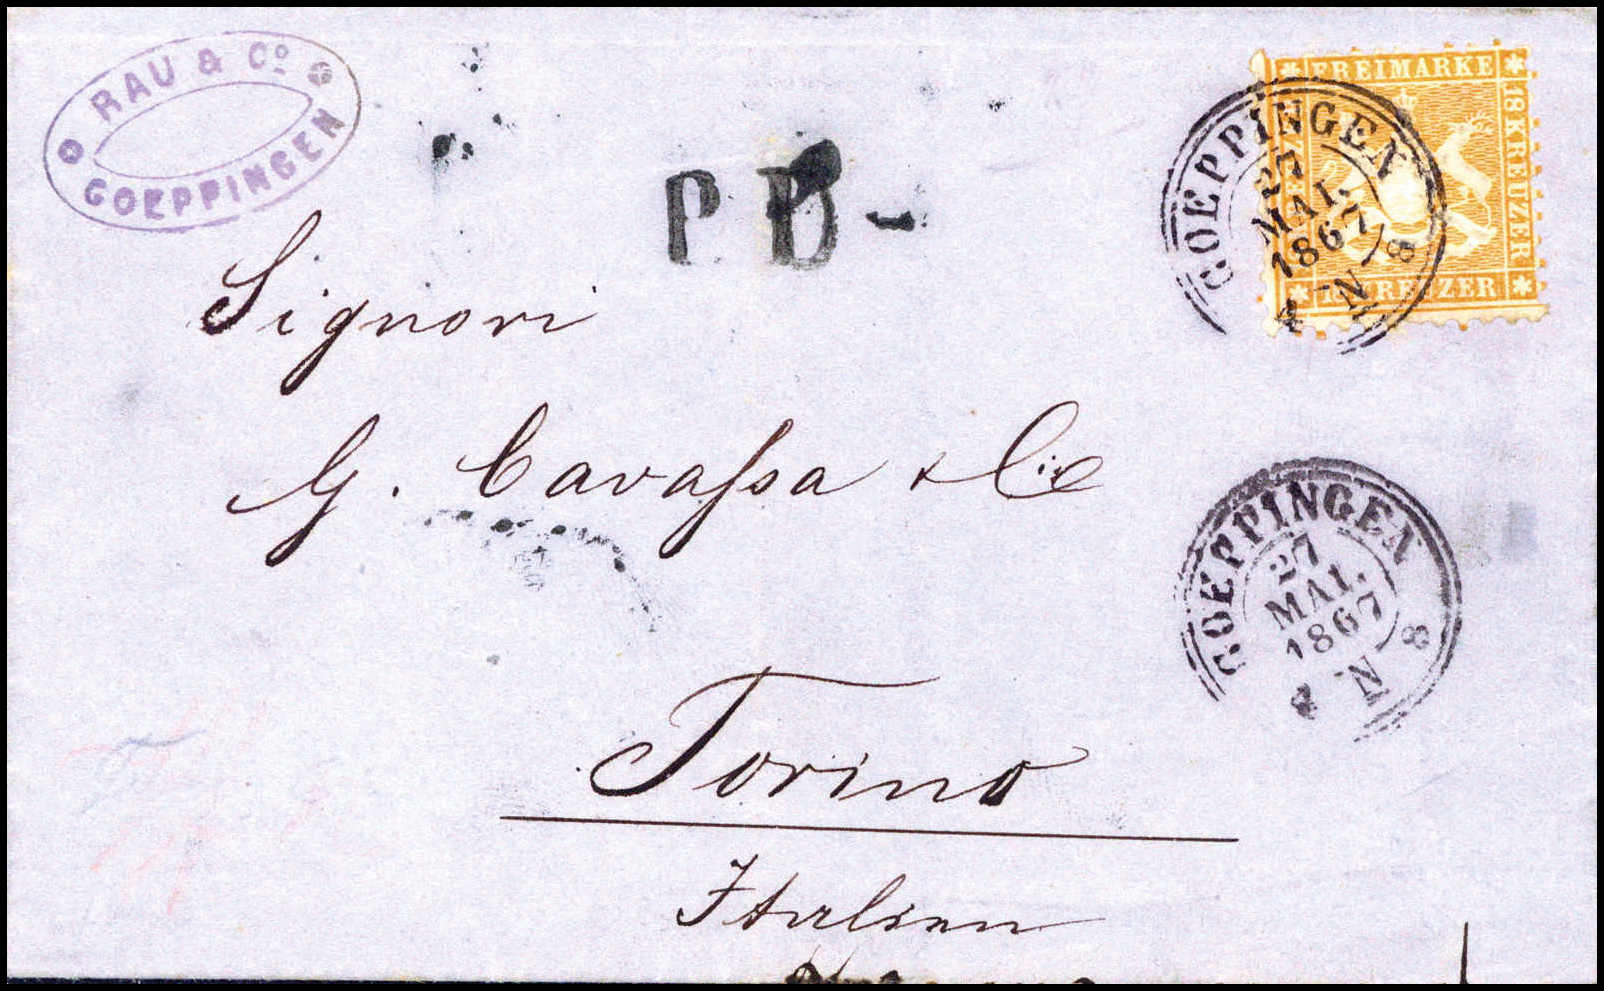 RAU & Co.
GOEPPINGEN
P.D.
FREIMARKE
18 KREUZER
18 KREUZER
GOEPPINGEN
27
MAI.
1867
4 N 8
Signori
G. Cavassa & Cie
GOEPPINGEN
27
MAI.
1867
4 N 8
Torino
Italien